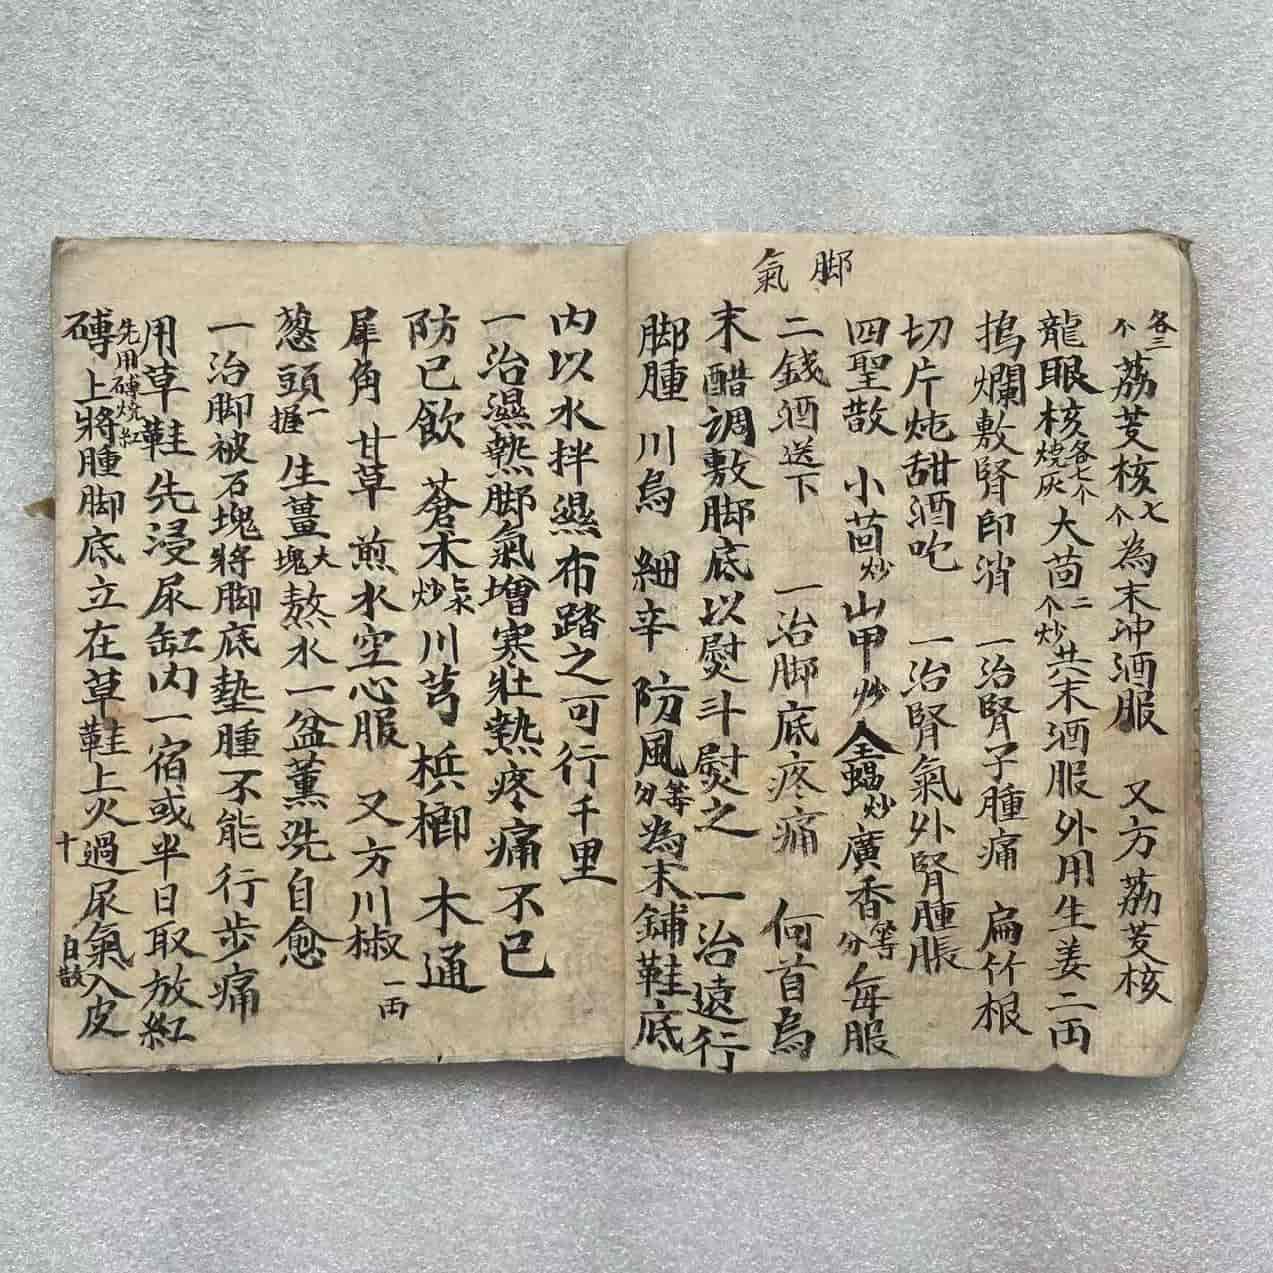 脚氣
各三个荔芰核七个為末冲酒服　又方荔芰核
龍眼核各七个燒灰大茴二个炒共末酒服外用生姜二両
搗爛敷腎即消　一治腎子腫痛　扁竹根
切片炖甜酒吃　一治腎氣外腎腫脹
四聖散　小茴炒山甲炒全蝎炒廣香等分每服
二錢酒送下　一治脚底疼痛　何首烏
末醋調敷脚底以熨斗熨之　一治遠行
脚腫　川烏　細辛　防風等分為末鋪鞋底
内以水拌濕布踏之可行千里
一治濕熱脚氣增寒壮熱疼痛不已
防已飲　蒼木上水炒川芎　梹榔　木通
犀角　甘草　煎水空心服　又方川椒一両
葱頭一握　生薑大塊熬水一盆薰洗自愈
一治脚被石塊將脚底墊腫不能行步痛
用草鞋先浸尿缸内一宿或半日取放紅
先用磚燒紅
磚上將腫脚底立在草鞋上火過尿氣入皮
十
自散